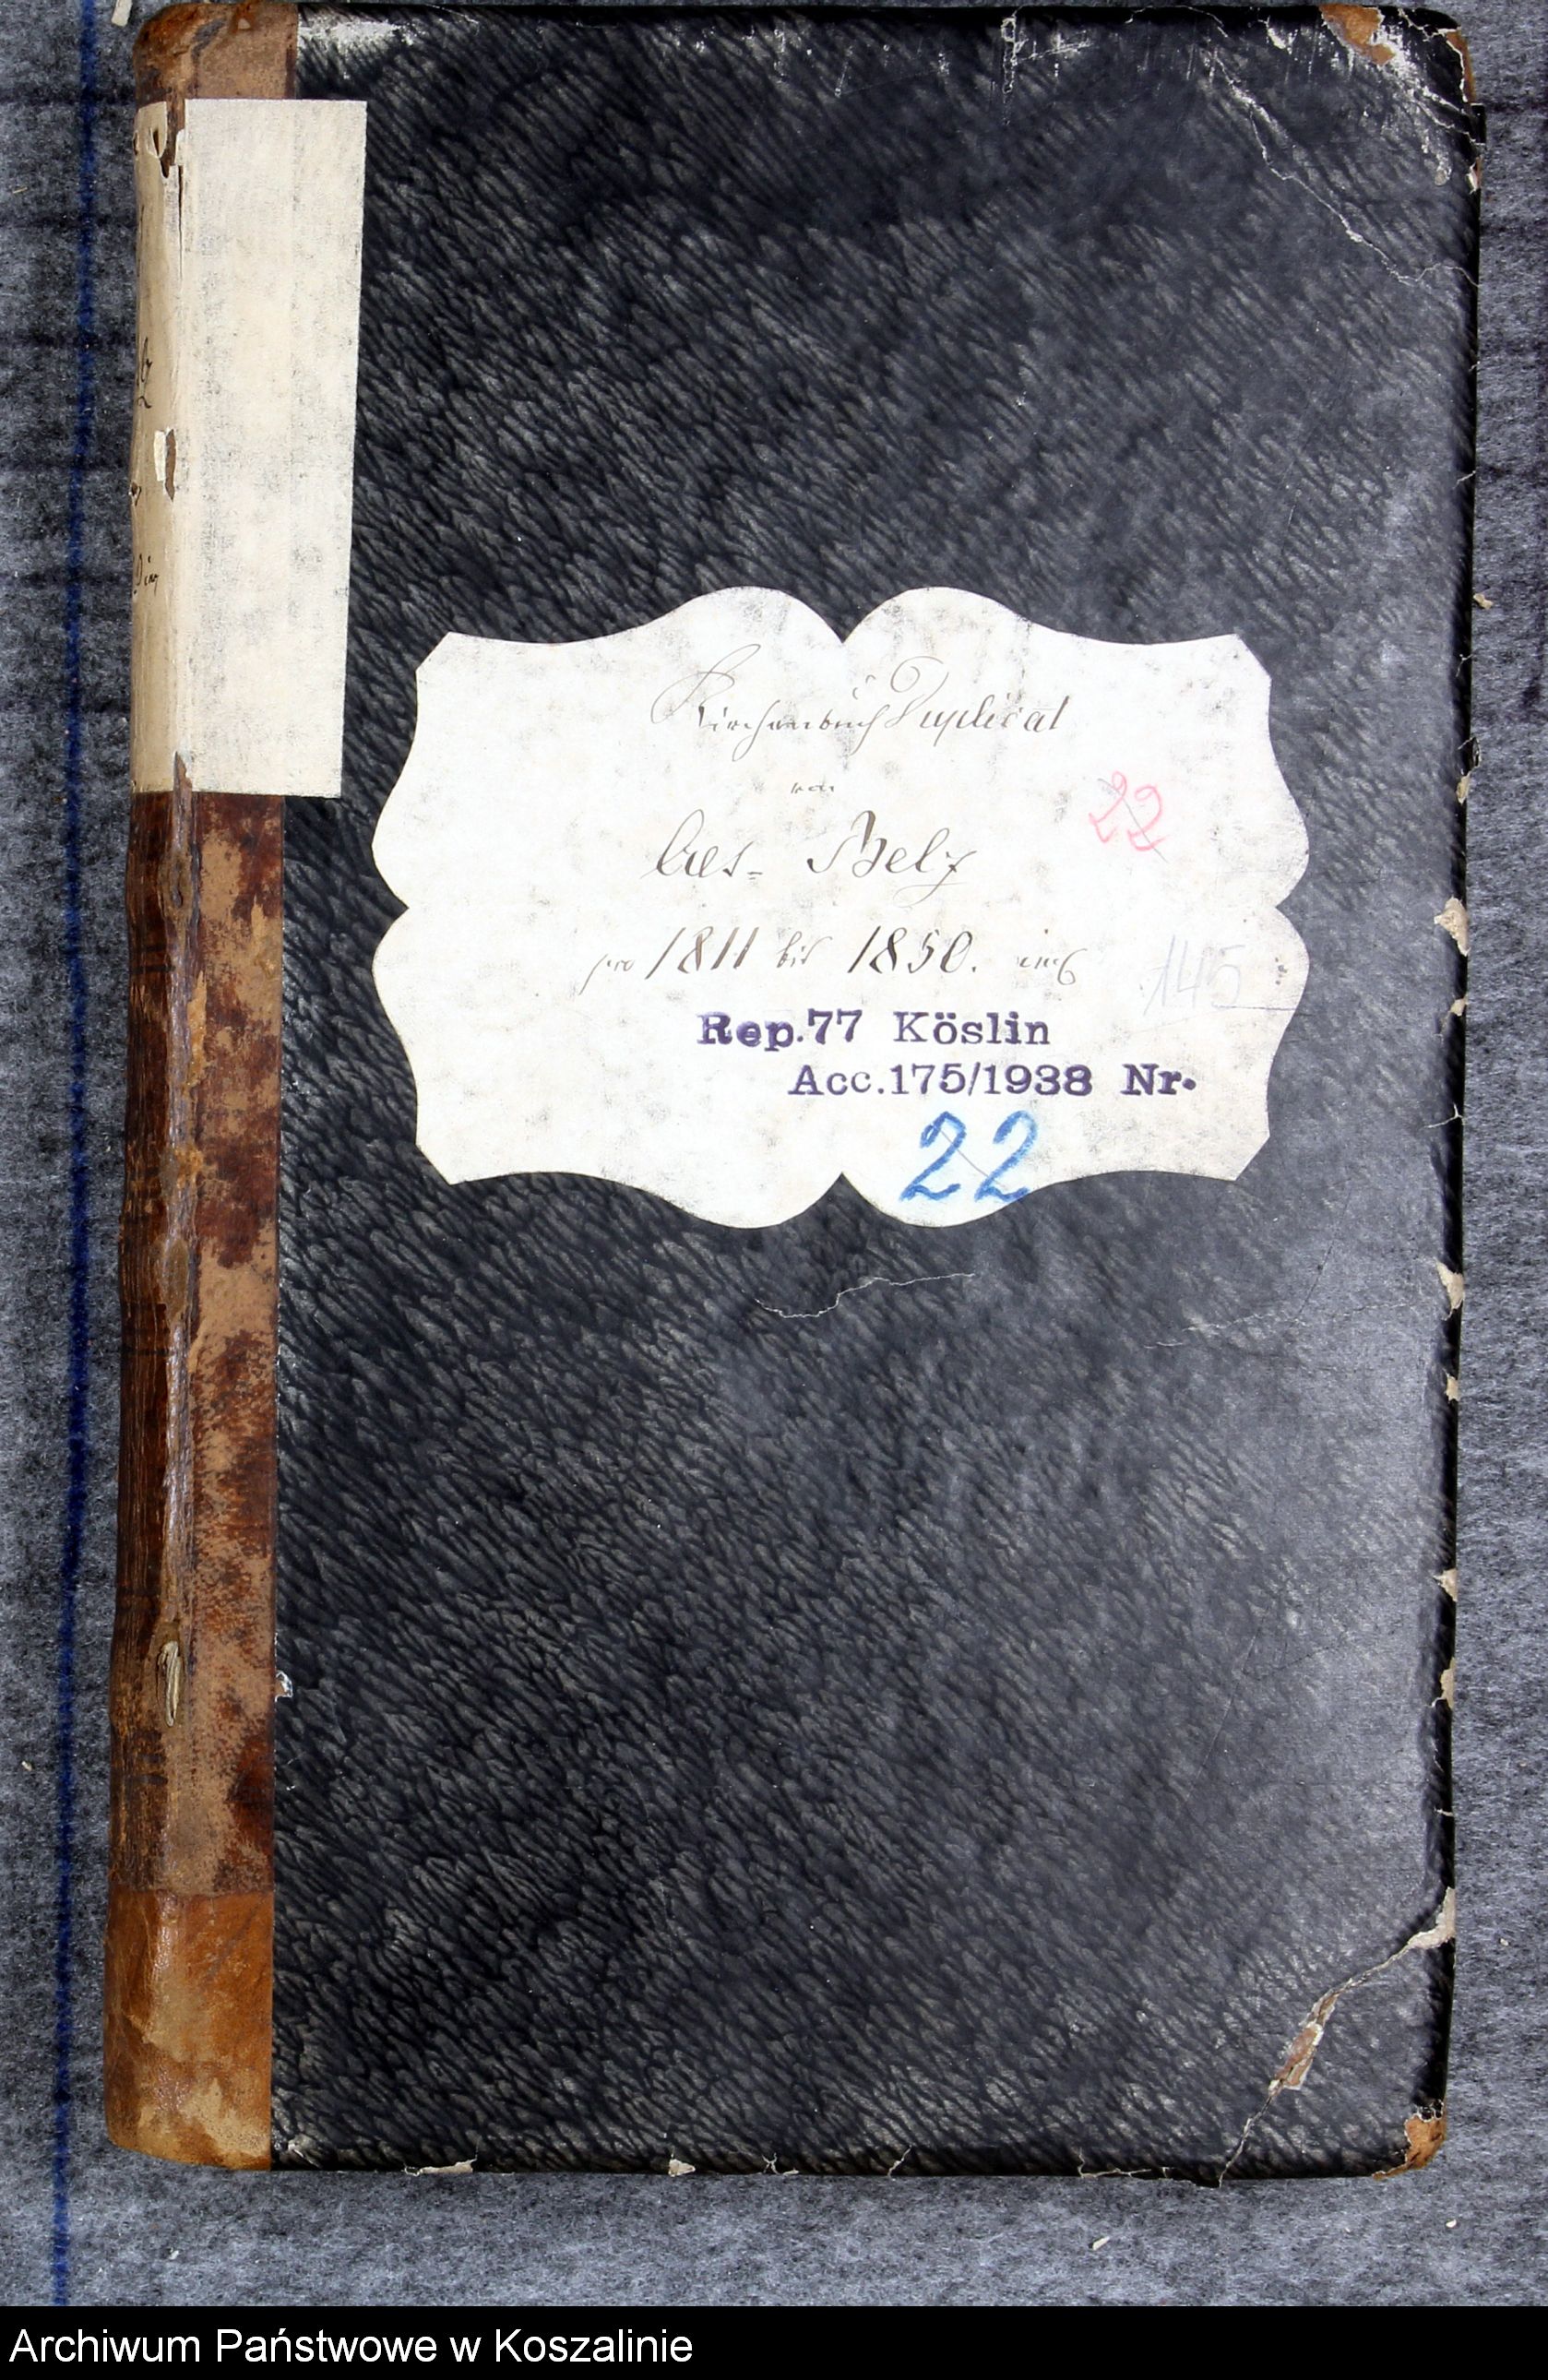 Kirchenbuch Duplicat
von
Alt-Belz
22
pro 1811 bis 1850. incl
145
Rep.77 Köslin
Acc.175/1938 Nr.
22
Archiwum Państwowe w Koszalinie